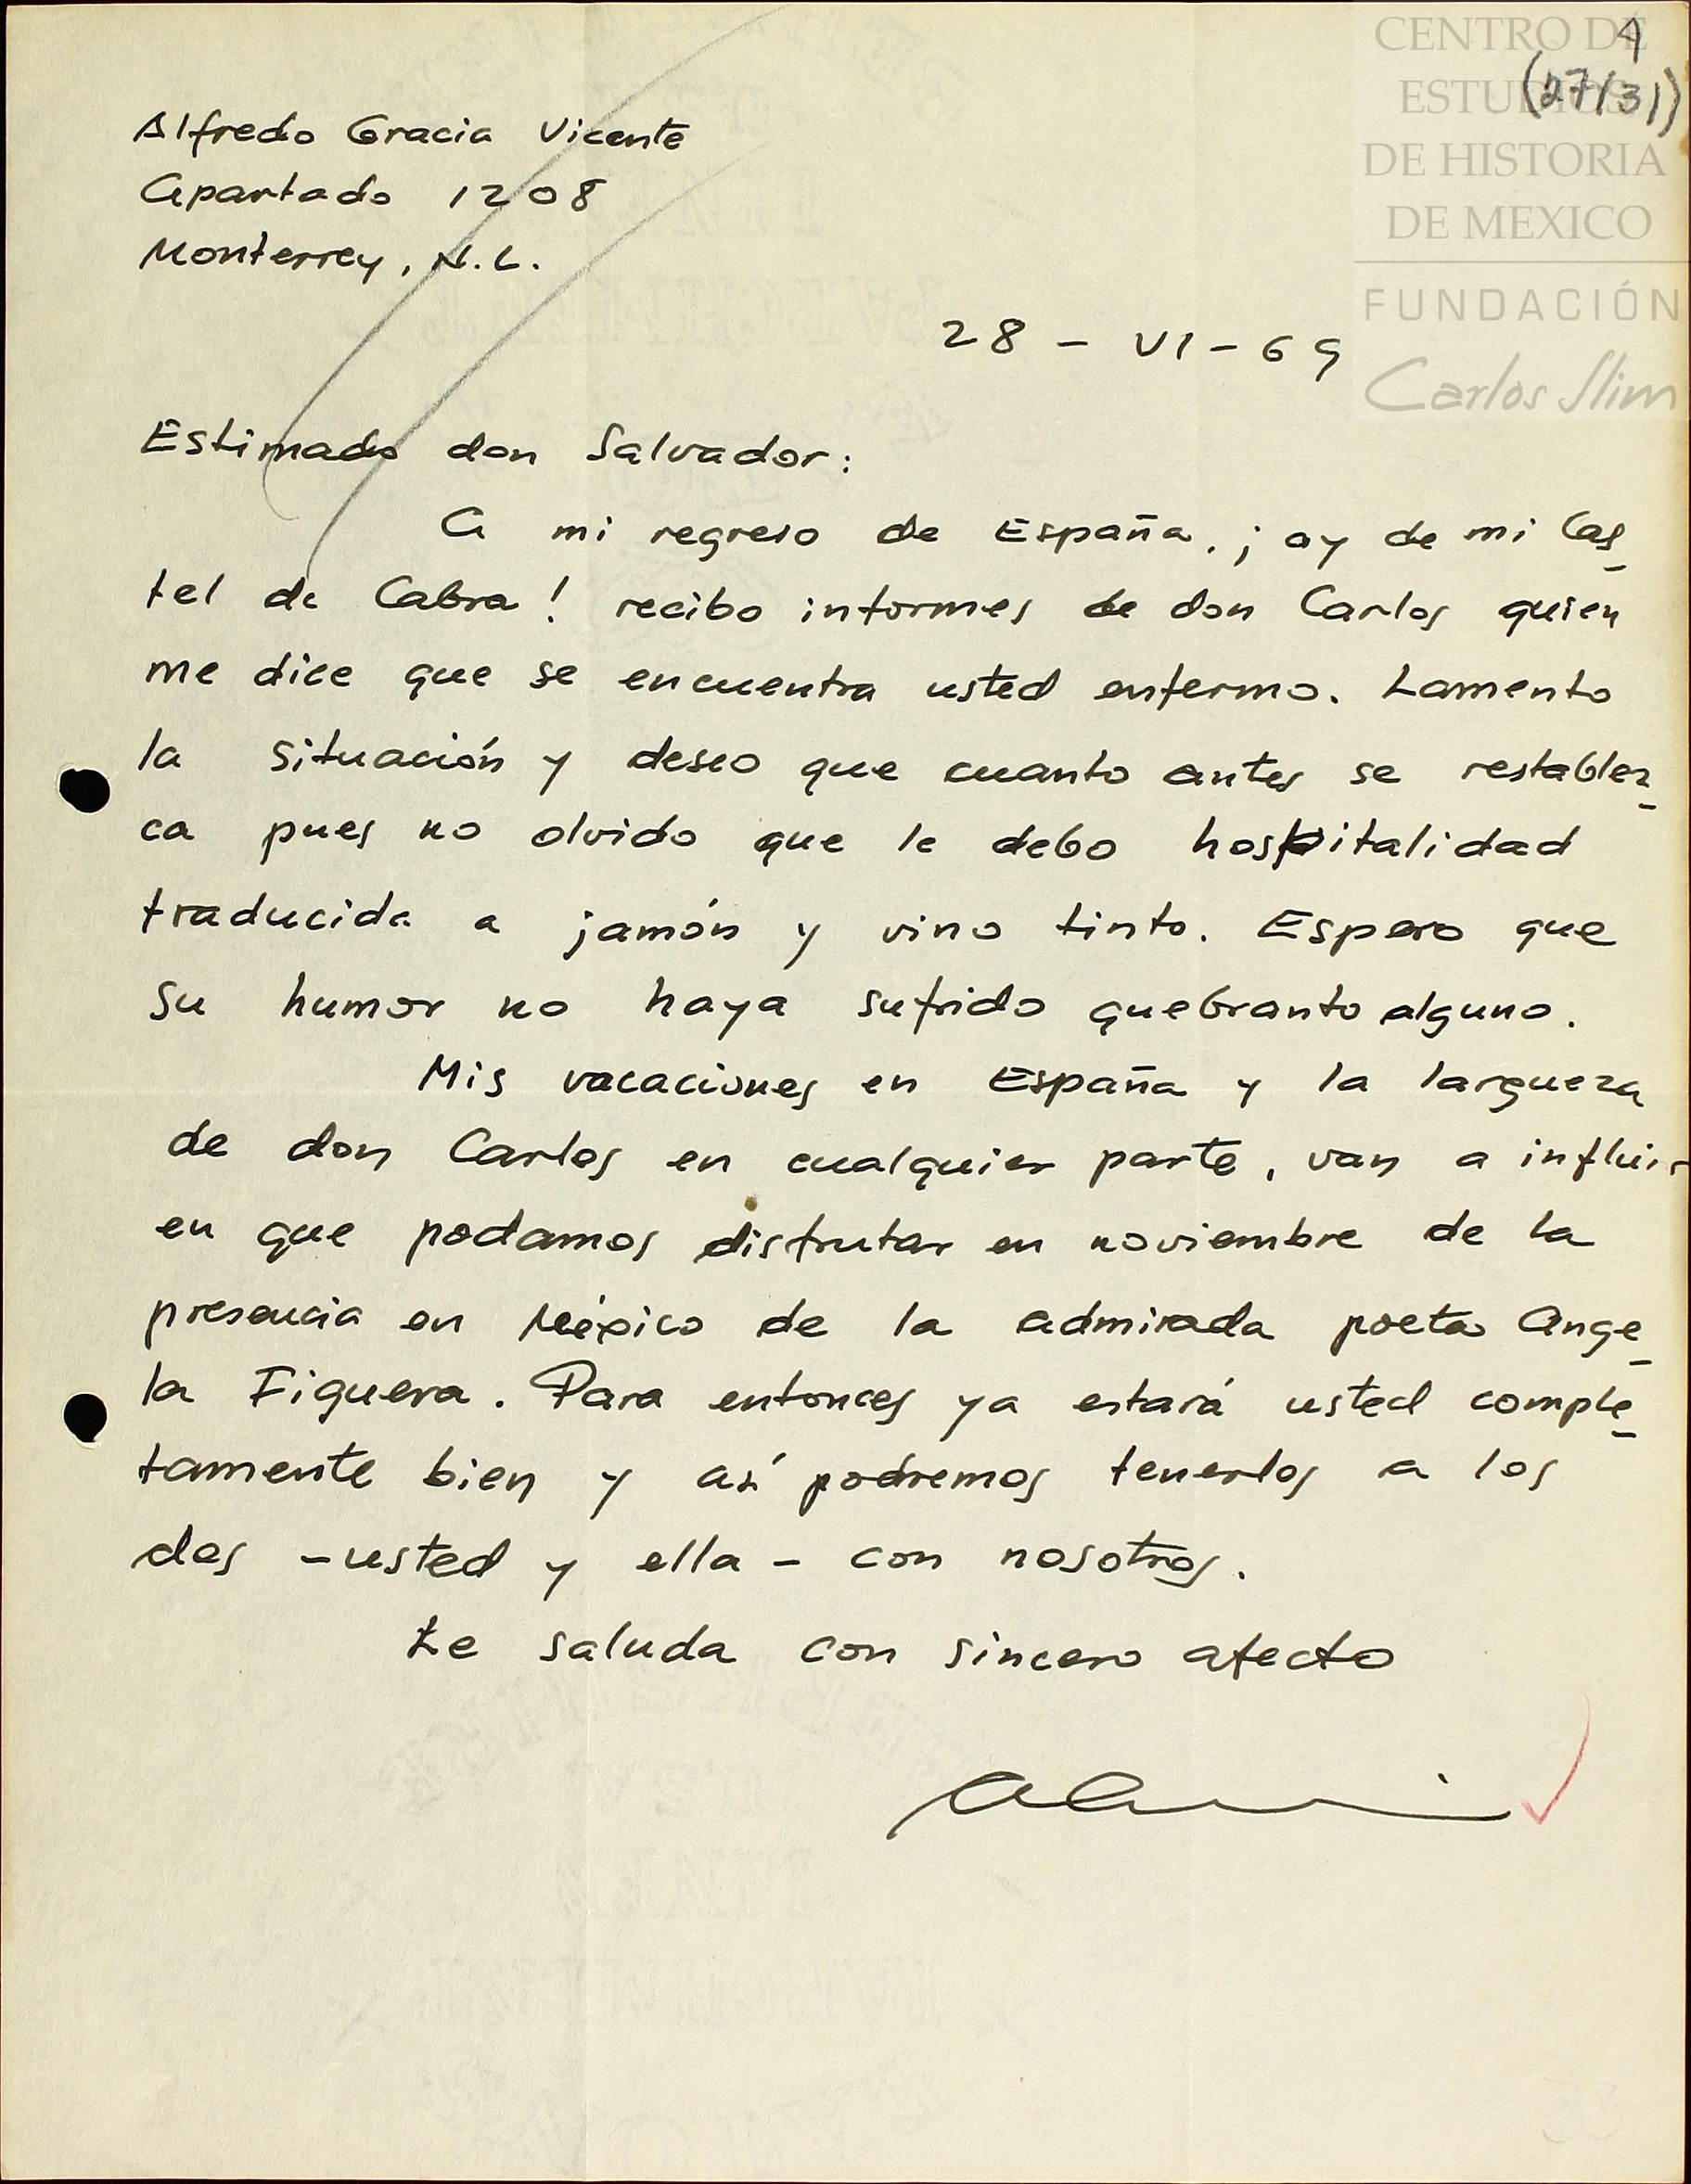 CENTRO DE
ESTUDIOS
DE HISTORIA
DE MEXICO
FUNDACIÓN
Carlos Slim
4
(27/31)
Alfredo Gracia Vicente
Apartado 1208
Monterrey, N.L.
28 - VI - 69
Estimado don Salvador:
A mi regreso de España, ¡ay de mi Cas-
tel de Cabra! recibo informes de don Carlos quien
me dice que se encuentra usted enfermo. Lamento
la situación y deseo que cuanto antes se restablez-
ca pues no olvido que le debo hospitalidad
traducida a jamón y vino tinto. Espero que
su humor no haya sufrido quebranto alguno.
Mis vacaciones en España y la largueza
de don Carlos en cualquier parte, van a influir
en que podamos disfrutar en noviembre de la
presencia en México de la admirada poeta Ange-
la Figuera. Para entonces ya estará usted comple-
tamente bien y así podremos tenerlos a los
dos - usted y ella - con nosotros.
Le saluda con sincero afecto